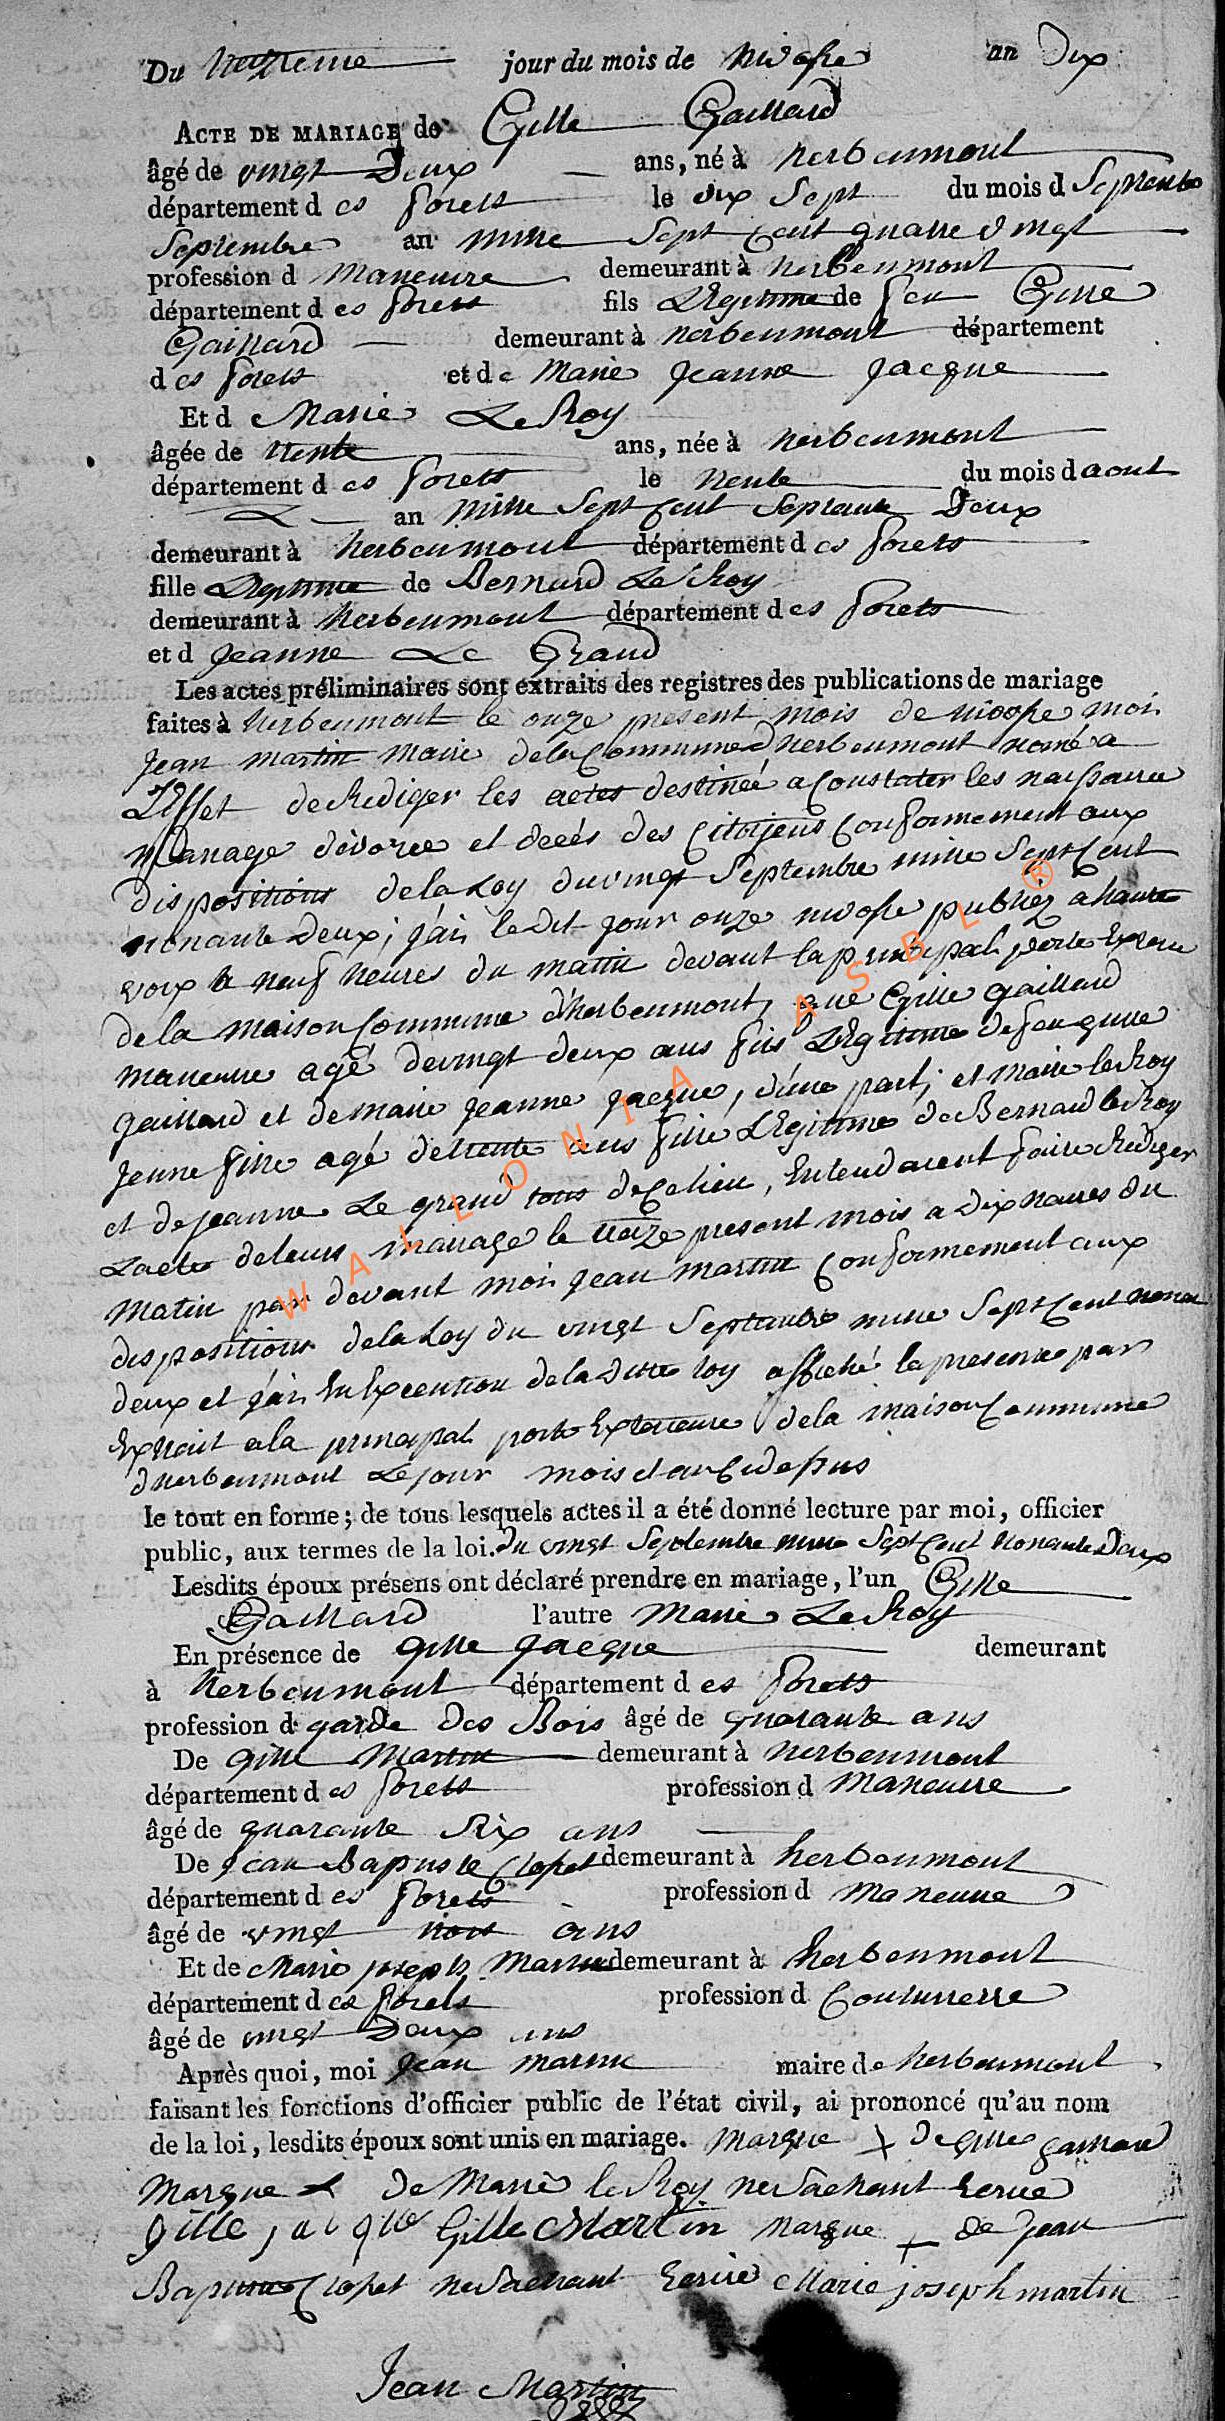 Du treizieme jour du mois de nivose an Dix
ACTE DE MARIAGE de Gille Gaillard
âgé de vingt Deux ans, né à herbeumont
département d es forets le dix Sept du mois d Septembre
Septembre an mille Sept Cent quatre vingt
profession d maneuvre demeurant à herbeumont
département d es forets fils Légitime de feu Gille
Gaillard demeurant à herbeumont département
d es forets et de Marie jeanne jacque
Et d Marie Le Roy
âgée de trente ans, née à herbeumont
département d es forets le trente du mois d aout
an mille Sept Cent Septante Deux
demeurant à herbeumont département d es forets
fille Légitime de Bernard Le Roy
demeurant à herbeumont département d es forets
et d jeanne Le Grand
Les actes préliminaires sont extraits des registres des publications de mariage
faites à herbeumont le onze present mois de nivose moi
jean martin maire dela Commune d'herbeumont nomé a
L'Effet de Rediger les actes destineé a Constater les naissance
Mariage divorce et decés des Citoijens Conformement aux
dispositions dela Loy du vingt Septembre mille Sept Cent
nonante deux; j'ai le dit jour onze nivose publiez a haute
voix a neuf heures du matin devant la principale porte Exterieure
de la maison Commune d'herbeumont, que Gille gaillard
maneuvre agé de vingt deux ans fils Légitime de feu gille
gaillard et de marie jeanne jacque, d'une part; et marie le Roy
jeune fille agé de trente ans fille Légitime de Bernard le Roy
et de jeanne Le grand tous de Ce lieu, Entendaient faire Rediger
L'acte de leurs mariage le treize present mois a dix heures du
matin par devant moi jean martin Conformement aux
dispositions dela Loy du vingt Septembre mille Sept Cent nonante
deux et j'ai En Execution dela ditte loy affiché la presente par
Extrait a la principal porte Exterieure dela maison Commune
d'herbeumont Le jour mois et an Cidessus
le tout en forme; de tous lesquels actes il a été donné lecture par moi, officier
public, aux termes de la loi. du vingt Septembre mille Sept Cent nonante Deux
Lesdits époux présens ont déclaré prendre en mariage, l'un Gille
Gaillard l'autre Marie Le Roy
En présence de gille jacque demeurant
à herbeumont département d es forets
profession d garde des Bois âgé de quarante ans
De gille Martin demeurant à herbeumont
département d es forets profession d Maneuvre
âgé de quarante Six ans
De jean Baptiste Clopet demeurant à herbeumont
département d es forets profession d maneuvre
âgé de vingt trois ans
Et de Marie joseph Martin demeurant à herbeumont
département d es forets profession d Couturierre
âgé de vingt Deux ans
Après quoi, moi jean martin maire de herbeumont
faisant les fonctions d'officier public de l'état civil, ai prononcé qu'au nom
de la loi, lesdits époux sont unis en mariage. marque + de gille gaillard
Marque + de Marie le Roy ne Sachant Ecrire
gille jacque Gille Martin marque + de jean
Baptiste Clopet ne Sachant Ecrire Marie joseph martin
Jean Martin
WALLONIA ASBL ®